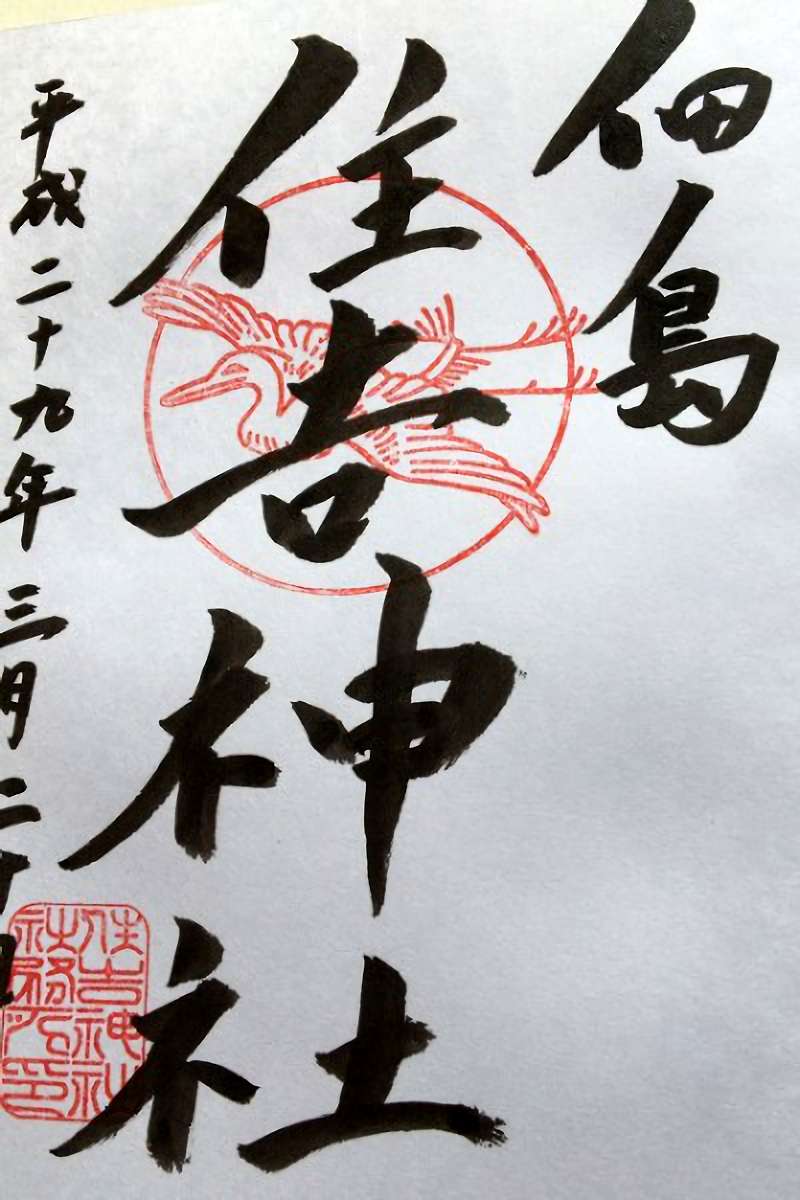 佃島
住吉神社
平成二十九年三月二十
住吉神社
社務印